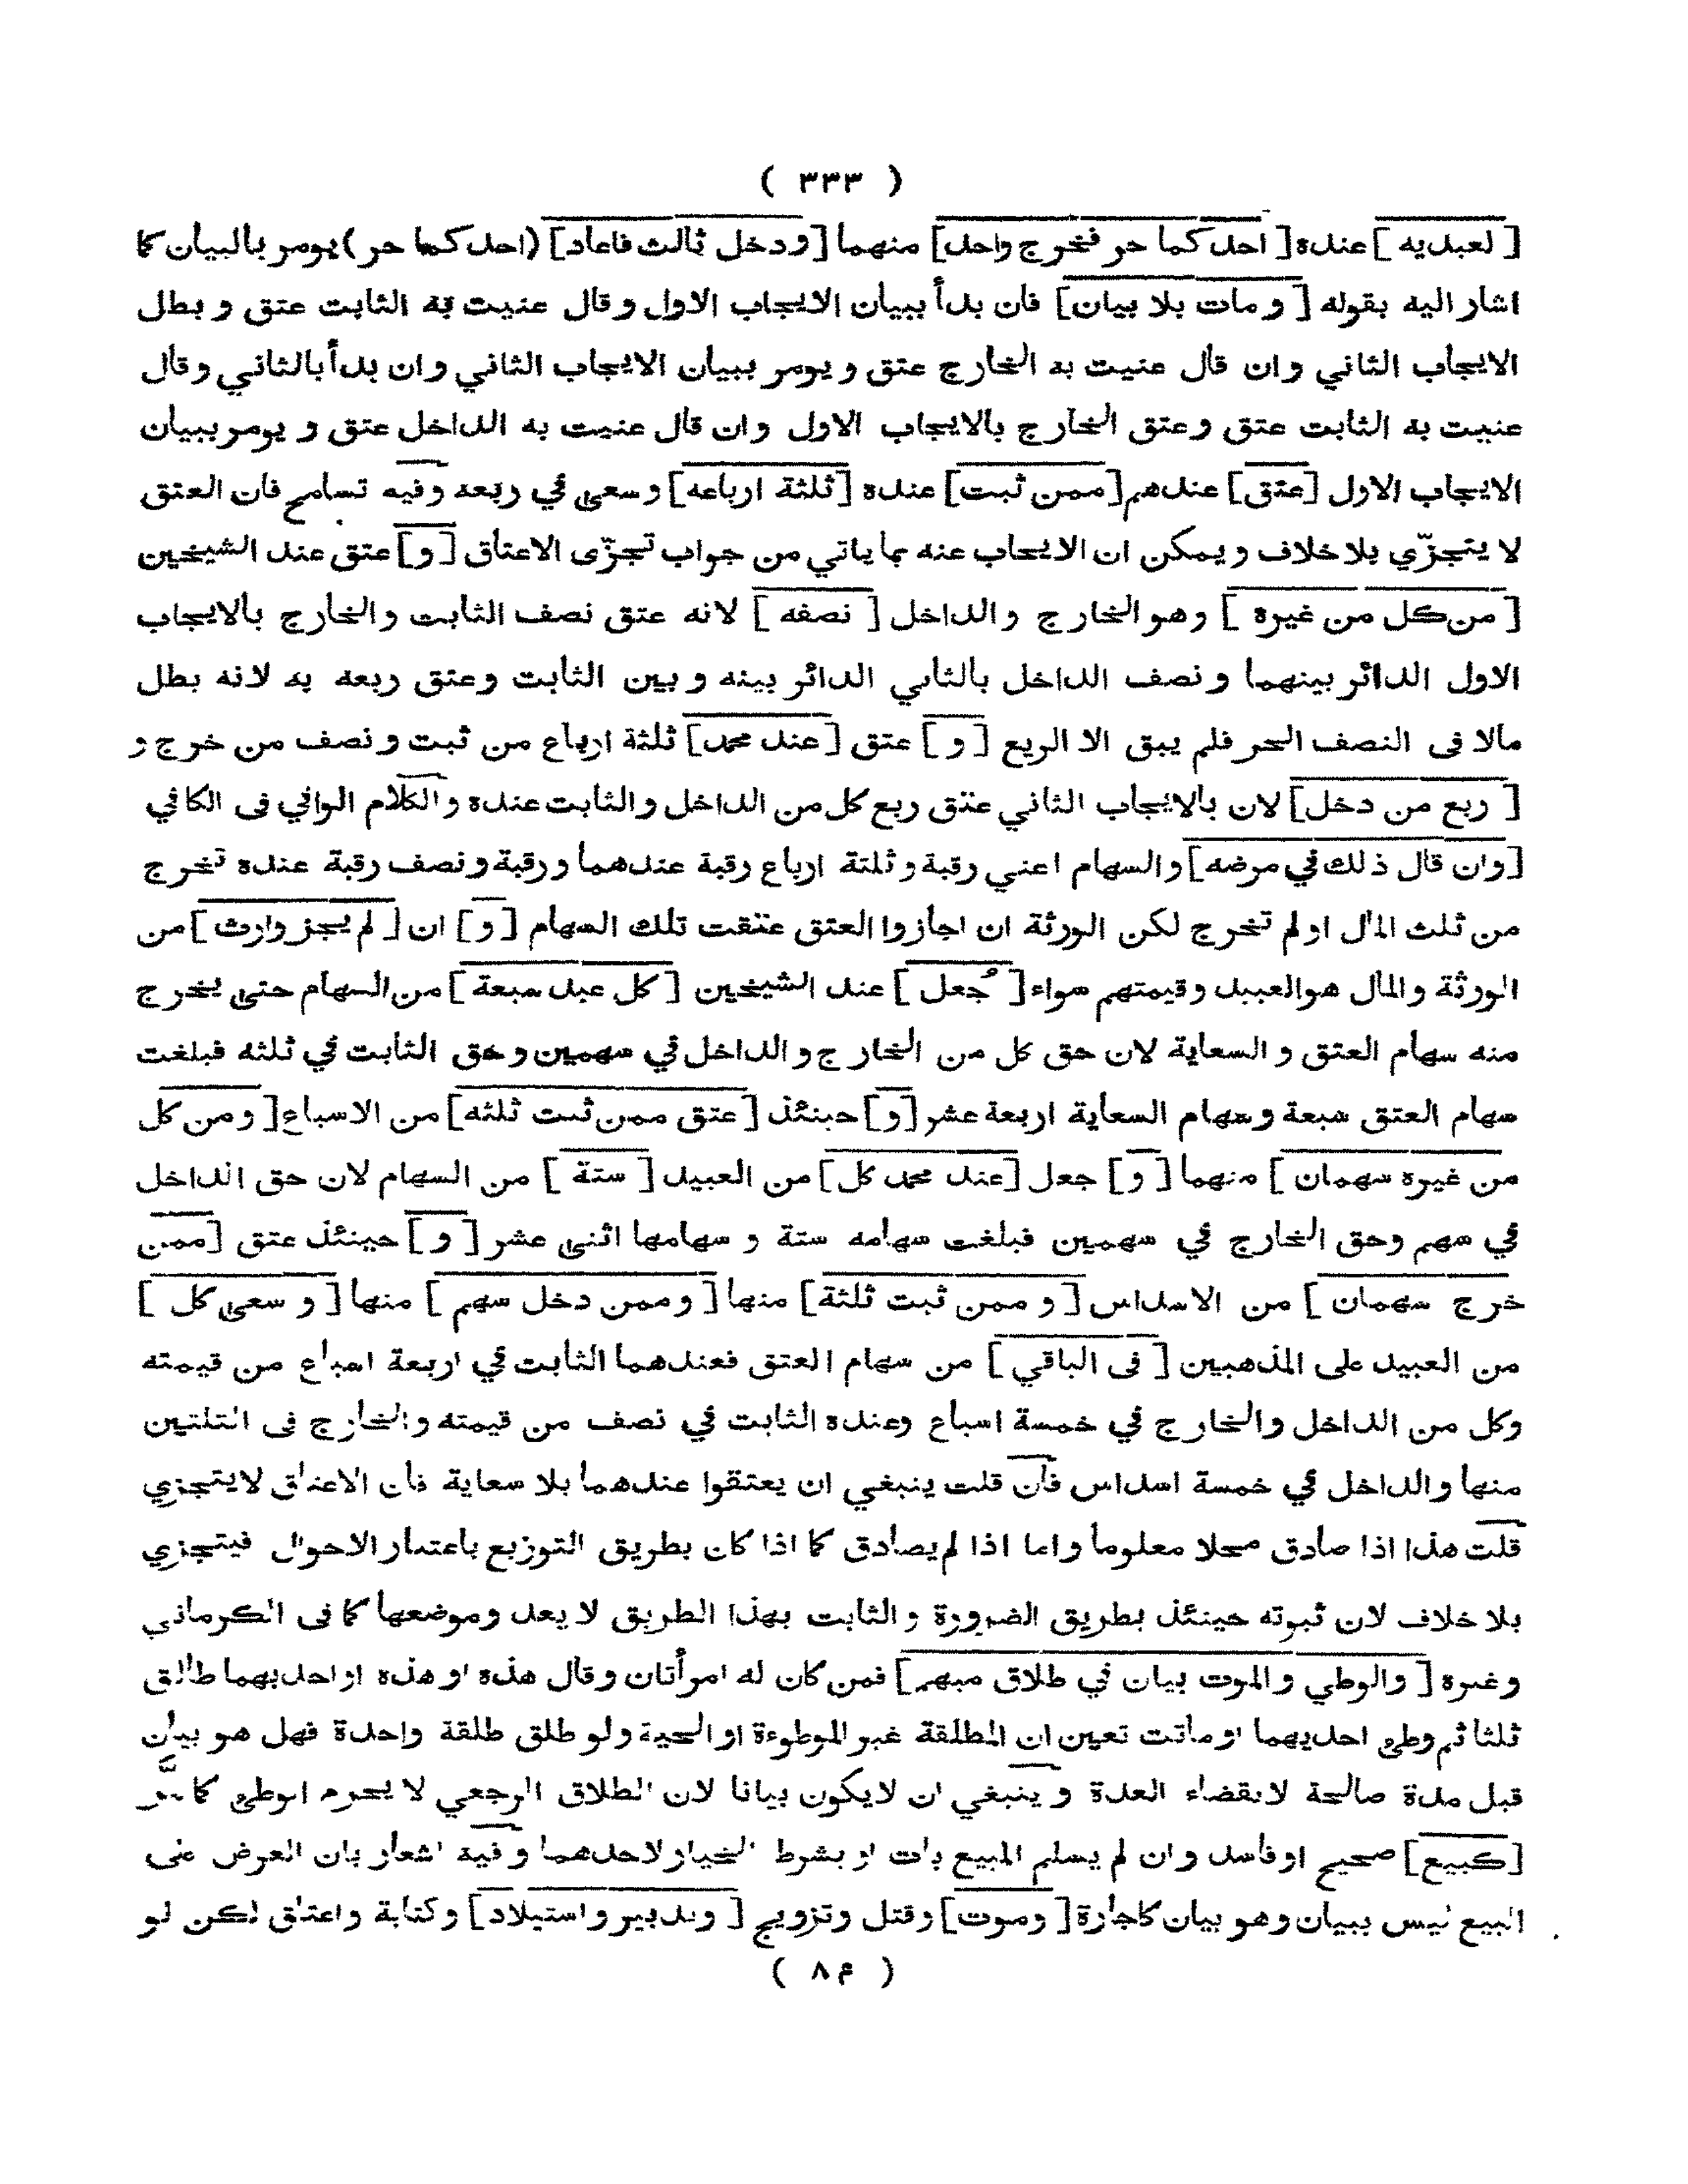 ( ٣٣٣ )
[ لعبديه ] عنده [ احدكما حر فخرج واحد] منهما [ودخل ثالث فاعاد] (احدكما حر) يومر بالبيان كما
اشار اليه بقوله [ و مات بلا بيان] فان بدأ ببيان الايجاب الاول وقال عنيت به الثابت عتق و بطل
الايجاب الثاني وان قال عنيت به الخارج عتق و يومر ببيان الايجاب الثاني وان بدأ بالثاني وقال
عنيت به الثابت عتق وعتق الخارج بالايجاب الاول وان قال عنيت به الداخل عتق و يومر ببيان
الايجاب الاول [عتق] عندهم [ممن ثبت] عنده [ثلثة ارباعه] وسعى في ربعه وفيه تسامح فان العتق
لا يتجزّي بلا خلاف ويمكن ان الايجاب عنه بما ياتي من جواب تجزّى الاعتاق [و] عتق عند الشيخين
[ من كل من غيره ] وهو الخارج والداخل [ نصفه ] لانه عتق نصف الثابت والخارج بالايجاب
الاول الدائر بينهما ونصف الداخل بالثاني الدائر بينه وبين الثابت وعتق ربعه به لانه بطل
مالا فى النصف الحر فلم يبق الا الربع [ و ] عتق [عند محمد] ثلثة ارباع من ثبت ونصف من خرج و
[ ربع من دخل] لان بالايجاب الثاني عتق ربع كل من الداخل والثابت عنده والكلام الوافي فى الكافي
[وان قال ذلك في مرضه] والسهام اعني رقبة وثلثة ارباع رقبة عندهما ورقبة ونصف رقبة عنده تخرج
من ثلث المال او لم تخرج لكن الورثة ان اجازوا العتق عتقت تلك السهام [و] ان [ لم يجز وارث] من
الورثة والمال هو العبيد وقيمتهم سواء [ جُعل ] عند الشيخين [ كل عبد سبعة ] من السهام حتى يخرج
منه سهام العتق و السعاية لان حق كل من الخارج و الداخل في سهمين وحق الثابت في ثلثه فبلغت
سهام العتق سبعة وسهام السعاية اربعة عشر [و] حينئذ [عتق ممن ثبت ثلثه] من الاسباع [ ومن كل
من غيره سهمان ] منهما [ و ] جعل [عند محمد كل] من العبيد [ ستة ] من السهام لان حق الداخل
في سهم وحق الخارج في سهمين فبلغت سهامه ستة و سهامها اثنى عشر [ و ] حينئذ عتق [ممن
خرج سهمان ] من الاسداس [ و ممن ثبت ثلثة] منها [ وممن دخل سهم ] منها [ و سعى كل ]
من العبيد على المذهبين [ فى الباقي ] من سهام العتق فعندهما الثابت في اربعة اسباع من قيمته
وكل من الداخل والخارج في خمسة اسباع وعنده الثابت في نصف من قيمته والخارج فى الثلثين
منها والداخل في خمسة اسداس فان قلت ينبغي ان يعتقوا عندهما بلا سعاية فان الاعتاق لايتجزي
قلت هذا اذا صادق محلا معلوما واما اذا لم يصادق كما اذا كان بطريق التوزيع باعتبار الاحوال فيتجزي
بلا خلاف لان ثبوته حينئذ بطريق الضرورة والثابت بهذا الطريق لا يعد وموضعها كما فى الكرماني
وغيره [ والوطي والموت بيان في طلاق مبهم ] فمن كان له امرأتان وقال هذه او هذه او احديهما طالق
ثلثا ثم وطى احديهما او ماتت تعين ان المطلقة غير الموطوءة او الحية ولو طلق طلقة واحدة فهل هو بيان
قبل مدة صالحة لانقضاء العدة و ينبغي ان لايكون بيانا لان الطلاق الرجعي لا يحرم الوطى كما مر
[كبيع] صحيح او فاسد وان لم يسلم المبيع بات او بشرط الخيار لاحدهما وفيه اشعار بان العرض على
البيع ليس ببيان وهو بيان كاجارة [ وموت] وقتل وتزويج [ وتدبير واستيلاد] وكتابة واعتاق لكن لو
( م ٨ )